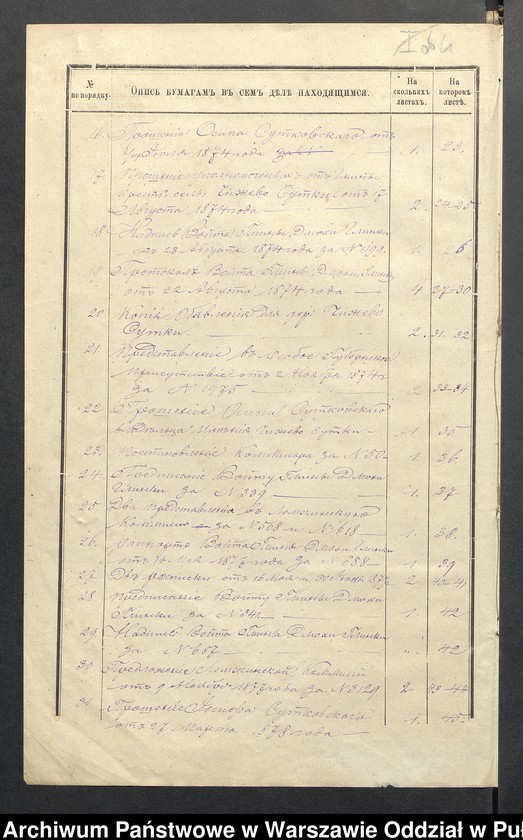 № по порядку.
Опись бумагамъ въ семъ дѣлѣ находящимся.
На сколькихъ листахъ.
На которомъ листѣ.
Прошенія Осипа Сутковскаго отъ
1874 года 1. 23.
17.
Крест. села Чижево Сутки отъ 17
Августа 1874 года — 2 24-25
18 Надпись Войта Гмины Дмохи Глинки
отъ 23 Августа 1874 года за № 1199. 1. 6
19 Протоколъ Войта Гмины Дмохи Глинки
отъ 22 Августа 1874 года — 4 27-30
20 Копія Объявленія для дер. Чижево
Сутки. 2. 31. 32
21. Представленіе въ Особое Губернское
Присутствіе отъ 2 Ноября 1874 г.
за № 1975 — 2 33-34
22 Прошенія Осипа Сутковскаго
владѣльца имѣнія Чижево Сутки — 1. 35
23. Постановленіе Коммисара за № 50 — 1 36.
24 Предписаніе Войту Гмины Дмохи
Глинки за № 339 — 1. 37
25 Два представленія въ Ломжинскую
Коммисію за № 508 и № 618 — 1. 38.
26. Рапортъ Войта Гмины Дмохи Глинки
отъ Мая 1877 года за № 688 — 1 39
27 Двѣ росписки отъ 16 Мая и 1877 2 40 41
28 Предписаніе Войту Гмины Дмохи
Глинки за № 1. 42
29 Надпись Войта Гмины Дмохи Глинки
за № 687 — „ 42
30 Предложеніе Ломжинской Коммисіи
отъ 9 Ноября 1877 года за № 5129 2 43-44
Прошеніе Іосифа Сутковскаго
отъ 27 Марта 1878 года — 1. 45.
Archiwum Państwowe w Warszawie Oddział w Puł